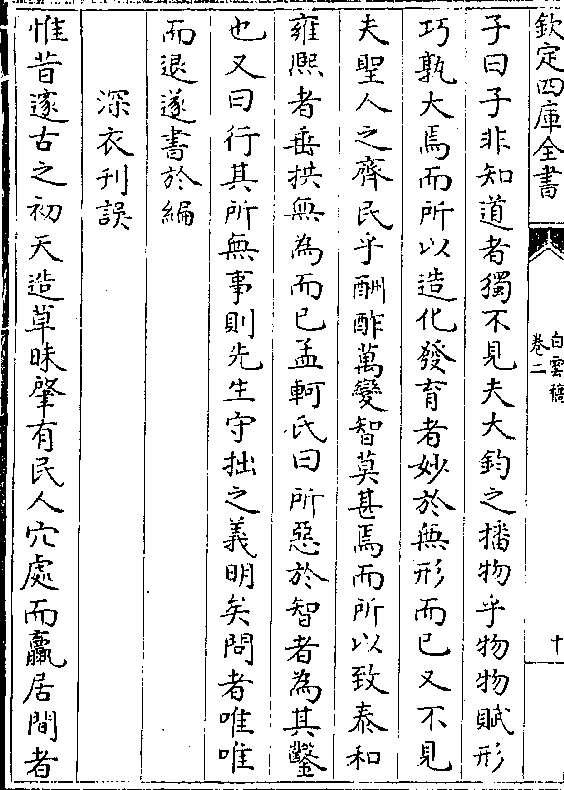 欽定四庫全書
白雲稿
卷二
十
子曰子非知道者獨不見夫大鈞之播物乎物物賦形
巧孰大焉而所以造化發育者妙於無形而已又不見
夫聖人之齊民乎酬酢萬變智莫甚焉而所以致泰和
雍熙者垂拱無為而已孟軻氏曰所惡於智者為其鑿
也又曰行其所無事則先生守拙之義明矣問者唯唯
而退遂書於編
深衣刋誤
惟昔邃古之初天造草昧肇有民人穴處而臝居間者